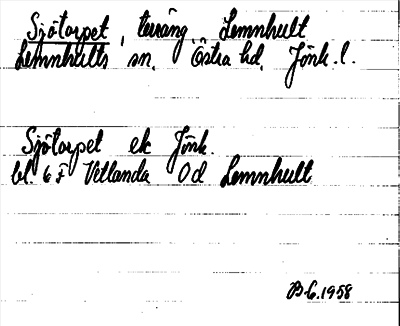 Sjötorpet, terräng, Lemnhult
Lemnhults sn. Östra hd. Jönk. l.
Sjötorpet ek Jönk.
bl. 6 F Vetlanda Od Lemnhult
B-G. 1958